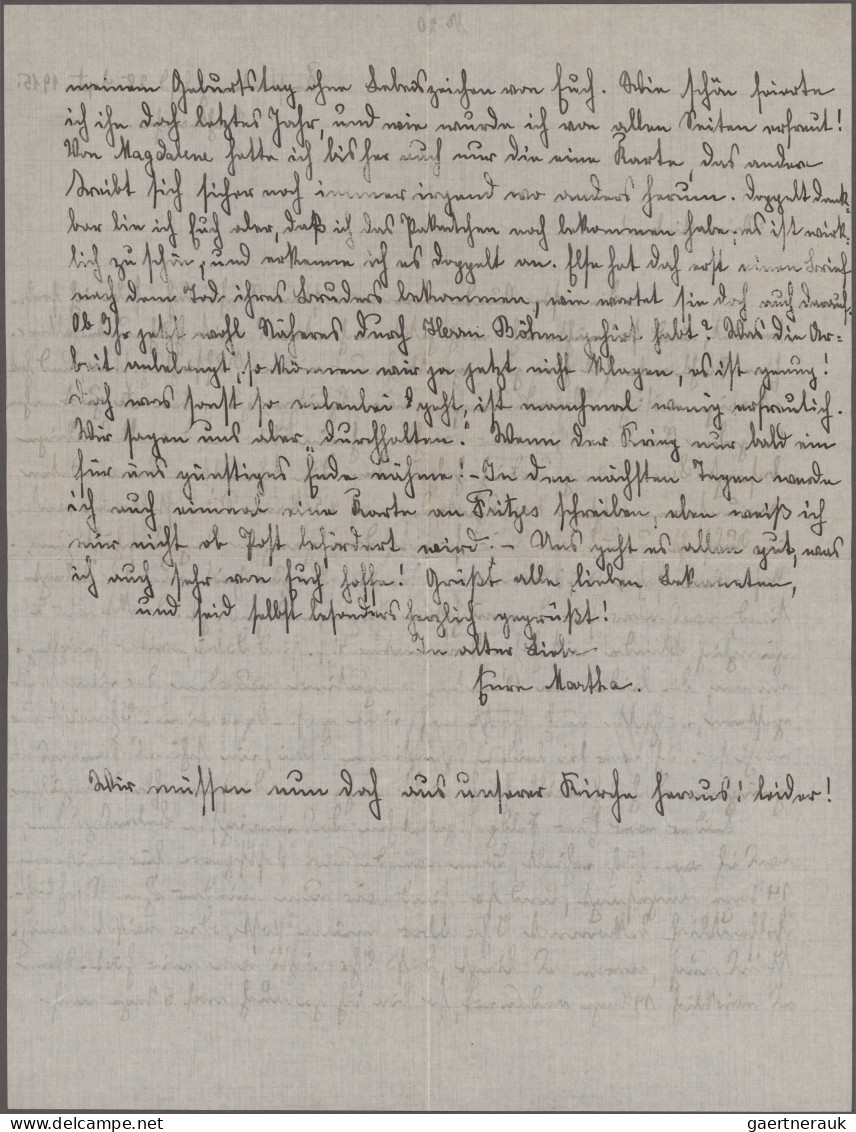 meinem Geburtstag ohne Lebenszeichen von Euch. Wie schön feierte
ich ihn doch letztes Jahr, und wie wurde ich von allen Seiten erfreut!
Von Magdalene hatte ich bisher auch nur die eine Karte, das andere
treibt sich sicher noch immer irgend wo anders herum. Doppelt dank-
bar bin ich Euch aber, daß ich das Paketchen noch bekommen habe; es ist wirk-
lich zu schön, und erkenne ich es doppelt an. Else hat doch erst einen Brief
nach dem Tod ihres Bruders bekommen, wie wartet sie doch auch darauf.
Ob Ihr jetzt wohl Näheres durch Herrn Böhm gehört habt? Was die Ar-
beit anbelangt, so können wir ja jetzt nicht klagen, es ist genug!
Doch was sonst so nebenbei geht, ist manchmal wenig erfreulich.
Wir sagen uns aber „durchhalten." Wenn der Krieg nur bald ein
für uns günstiges Ende nähme! - In den nächsten Tagen werde
ich auch einmal eine Karte an Fritzes schreiben, eben weiß ich
nur nicht ob Post befördert wird. - Uns geht es allen gut, was
ich auch sehr von Euch hoffe! Grüßt alle lieben Bekannten,
und seid selbst besonders herzlich gegrüßt!
In alter Liebe
Eure Martha.
Wir müssen nun doch aus unserer Kirche heraus! leider!
www.delcampe.net
gaertnerauk